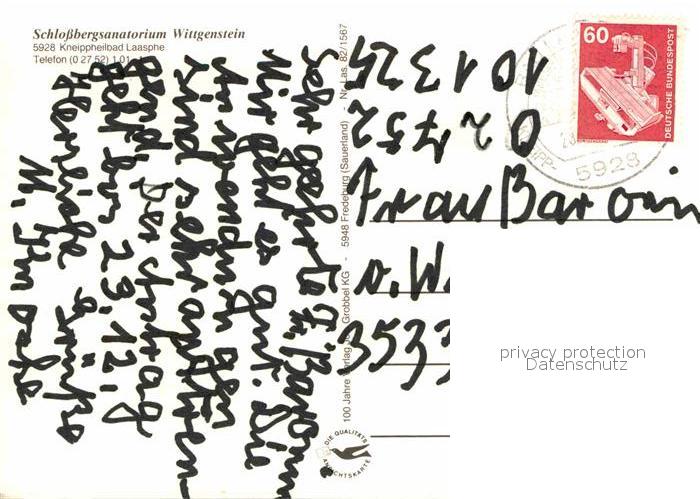 Schloßbergsanatorium Wittgenstein
5928 Kneippheilbad Laasphe
Telefon (0 27 52) 1 01-
Sehr geehrte Fr. Baronin
Mir geht es gut. Die
An wendungen
sind sehr anstren-
gend. Der
geht bis 29.12.!
Herzliche Grüße
M.
Nr. Las. 82/1567
5948 Fredeburg (Sauerland)
100 Jahre Verlag Jos. Grobbel KG
DIE QUALITÄTS
ANSICHTSKARTE
60
DEUTSCHE BUNDESPOST
5928
101325
02752
Frau Baronin
v. W.
3533
privacy protection
Datenschutz